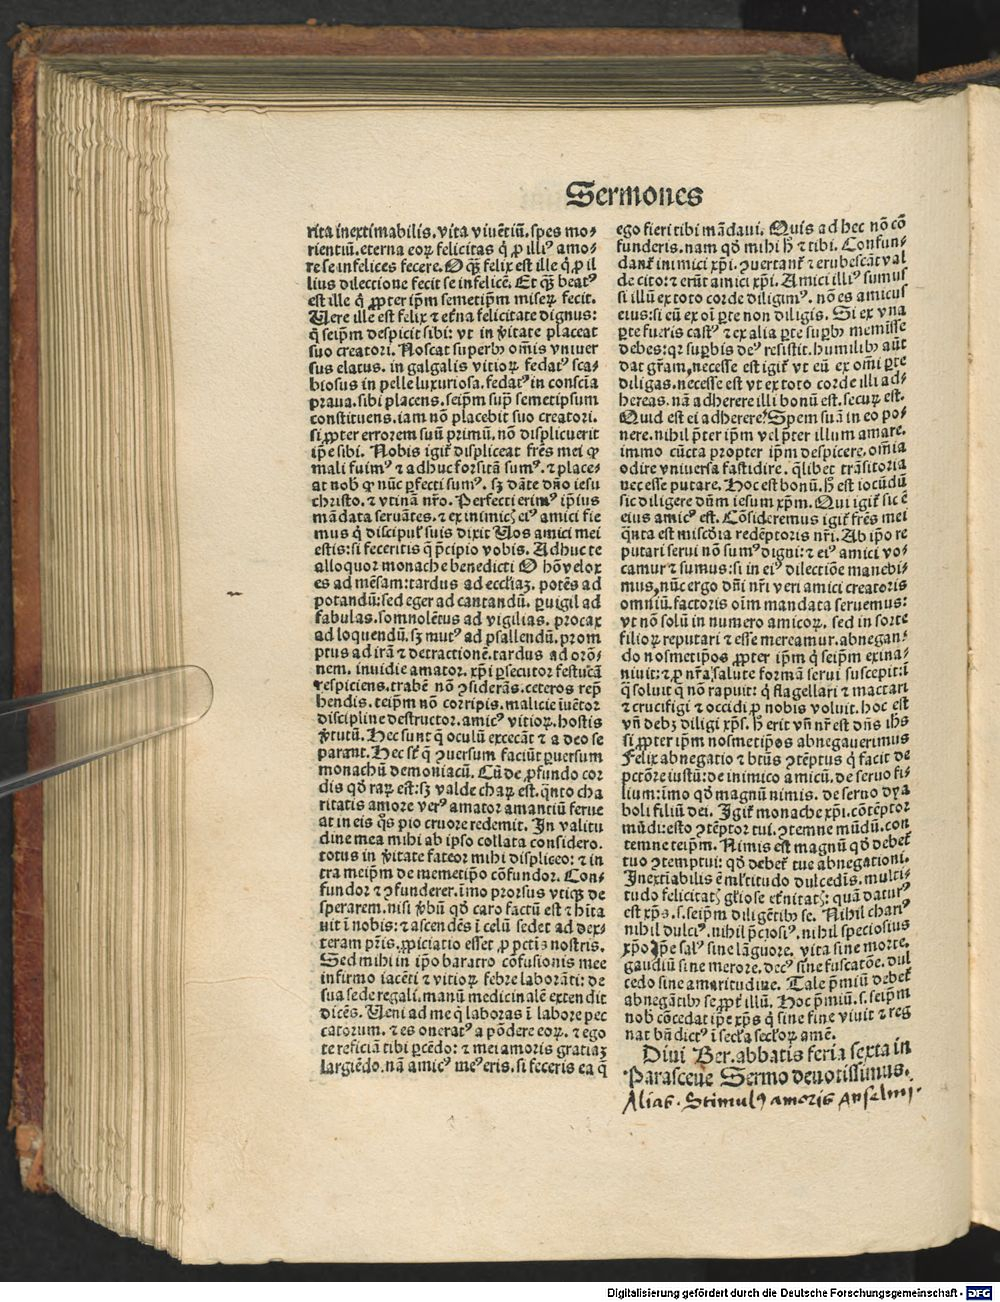 Sermones
rita inextimabilis. vita viuẽtiũ. spes mo-
rientiũ. eterna eoꝝ felicitas q̇ ꝓ illi⁹ amo-
re se infelices fecere. O qȝ felix est ille q̇ ꝓ il
lius dilectione fecit se infelicẽ. Et qȝ beat⁹
est ille q̇ ꝓpter ip̃m semetip̃m miseꝝ fecit.
Uere ille est felix ⁊ et̃na felicitate dignus:
q̇ seip̃m despicit sibi: vt in v̇itate placeat
suo creatori. Noscat superbꝰ om̃is vniuer
sus elatus. in galgalis vitioꝝ fedat⁹ sca-
biosus in pelle luxuriosa. fedat⁹ in consciã
praua. sibi placens. seip̃m sup̃ semetipsum
constituens. iam nõ placebit suo creatori.
si ꝓpter errorem suũ primũ. nõ displicuerit
ip̃e sibi. Nobis igit᷑ displiceat fr̃es mei ꝙ
mali fuim⁹ ⁊ adhuc forsitã sum⁹. ⁊ place-
at nob̃ ꝙ nũc ꝑfecti sum⁹. sȝ dãte dño iesu
christo. ⁊ vtinã nr̃o. Perfecti erim⁹ ip̃ius
mãdata seruãtes. ⁊ ex inimicꝭ ei⁹ amici fie
mus q̇ discipul᷑ suis dixit Uos amici mei
estis: si feceritis q̃ p̃cipio vobis. Adhuc te
alloquor monache benedicti O hõ velox
es ad mẽsam: tardus ad eccl̃iaȝ. potẽs ad
potandũ: sed eger ad cantandũ. ꝑuigil ad
fabulas. somnolẽtus ad vigilias. procax
ad loquendũ. sȝ mut⁹ ad psallendũ. prom
ptus ad irã ⁊ detractionẽ. tardus ad orõ-
nem. inuidie amator. xp̃i ꝑsecutor festucã
respiciens. trabẽ nõ ꝯsiderãs. ceteros rep̃
hendis. teip̃m nõ corripis. malicie iuẽtor
discipline destructor. amic⁹ vitioꝝ. hostis
v̇tutũ. Hec sunt q̃ oculũ excecãt ⁊ a deo se
parant. Hec sũt q̃ ꝯuersum faciũt ꝑuersum
monachũ demoniacũ. Cũ de ꝓfundo cor
dis qđ raꝝ est: sȝ valde chaꝝ est. q̃nto cha
ritatis amore ver⁹ amator amantiũ ferue
at in eis q̃s pio cruore redemit. In valitu
dine mea mihi ab ipso collata considero.
totus in v̇itate fateor mihi displiceo: ⁊ in
tra meip̃m de memetip̃o cõfundor. Con-
fundor ⁊ ꝯfunderer. ĩmo prorsus vtiqꝫ de
sperarem. nisi v̇bũ qđ caro factũ est ⁊ hĩta
uit ĩ nobis: ⁊ ascendẽs ĩ celũ sedet ad dex-
teram pr̃is. ꝓpiciatio esset ꝓ pctĩs nostris.
Sed mihi in ip̃o baratro cõfusionis mee
infirmo iacẽti ⁊ vitioꝝ febre laborãti: de
sua sede regali. manũ medicinalẽ extendit
dicẽs. Ueni ad me q̇ laboras ĩ labore pec
catorum. ⁊ es onerat⁹ a põdere eoꝝ. ⁊ ego
te reficiã tibi ꝑcẽdo: ⁊ mei amoris gratiaȝ
largiẽdo. nã amic⁹ me⁹ eris. si feceris ea q̃
ego fieri tibi mãdaui. Quis ad hec nõ cõ
funderis. nam qđ mihi h̃ ⁊ tibi. Confun-
dant᷑ inimici xp̃i. ꝯuertant᷑ ⁊ erubescãt val
de cito: ⁊ erũt amici xp̃i. Amici illi⁹ sumus
si illũ ex toto corde diligim⁹. nõ es amicus
eius: si eũ ex oĩ ꝑte non diligis. Si ex vna
ꝑte fueris cast⁹ ⁊ ex alia ꝑte suꝑbꝰ meminisse
debes: qr suꝑbis de⁹ resistit. humilibꝰ aũt
dat gr̃am, necesse est igit᷑ vt eũ ex om̃i ꝑte
diligas. necesse est vt ex toto corde illi ad-
hereas. nã adherere illi bonũ est. secuꝝ est.
Quid est ei adherere? Spem suã in eo po-
nere. nihil p̃ter ip̃m vel p̃ter illum amare.
immo cũcta propter ip̃m despicere. om̃ia
odire vniuersa fastidire. q̃libet trãsitoria
nec esse putare. Hoc est bonũ. h̃ est iocũdũ
sic diligere dñm iesum xp̃m. Qui igit᷑ sic ẽ
eius amic⁹ est. Cõsideremus igit᷑ fr̃es mei
q̃nta est misc̃dia redẽptoris nr̃i. Ab ip̃o re
putari serui nõ sum⁹ digni: ⁊ ei⁹ amici vo-
camur ⁊ sumus: si in ei⁹ dilectiõe manebi-
mus, nũc ergo dñi nr̃i veri amici creatoris
omniũ. factoris oĩm mandata seruemus:
vt nõ solũ in numero amicoꝝ. sed in sorte
filioꝝ reputari ⁊ esse mereamur. abnegan-
do nosmetip̃os ꝓpter ip̃m q̇ seip̃m exina-
niuit: ⁊ ꝓ nr̃a salute formã serui suscepit: ĩ
q̃ soluit q̃ nõ rapuit: q̇ flagellari ⁊ mactari
⁊ crucifigi ⁊ occidi ꝓ nobis voluit. hoc est
vñ debȝ diligi xp̃s. h̃ erit vñ nr̃ est dñs ihs
si ꝓpter ip̃m nosmetip̃os abnegauerimus
Felix abnegatio ⁊ btũs ꝯtẽptus q̇ facit de
pctõre iustũ: de inimico amicũ. de seruo fi-
lium: ĩmo qđ magnũ nimis. de seruo dya
boli filiũ dei. Igit᷑ monache xp̃i. cõtẽptor
mũdi: esto ꝯtẽptor tui. ꝯtemne mũdũ. con
temne teip̃m. Nimis est magnũ qđ debet᷑
tuo ꝯtemptui: qđ debet᷑ tue abnegationi.
Inextĩabilis ẽ ml̃titudo dulcedĩs. multi-
tudo felicitatꝭ gl̃iose et̃nitatꝭ: quã datur⁹
est xp̃s. s. seip̃m diligẽtibꝰ se. Nihil chari⁹
nihil dulci⁹. nihil p̃ciosi⁹. nihil speciosius
xp̃o ip̃e sal⁹ sine lãguore. vita sine morte.
gaudiũ sine merore. dec⁹ sine fuscatõe. dul
cedo sine amaritudine. Tale p̃miũ debet᷑
abnegãtibꝰ se ꝓpt᷑ illũ. Hoc p̃miũ. s. seip̃m
nob̃ cõcedat ip̃e xp̃s q̇ sine fine viuit ⁊ reg
nat bñdict⁹ ĩ secl̃a secl̃oꝝ amẽ.
Diui Ber. abbatis feria sexta in
Parasceue Sermo deuotissimus.
Alias. Stimul⁹ amoris Anselmi.
Digitalisierung gefördert durch die Deutsche Forschungsgemeinschaft - DFG